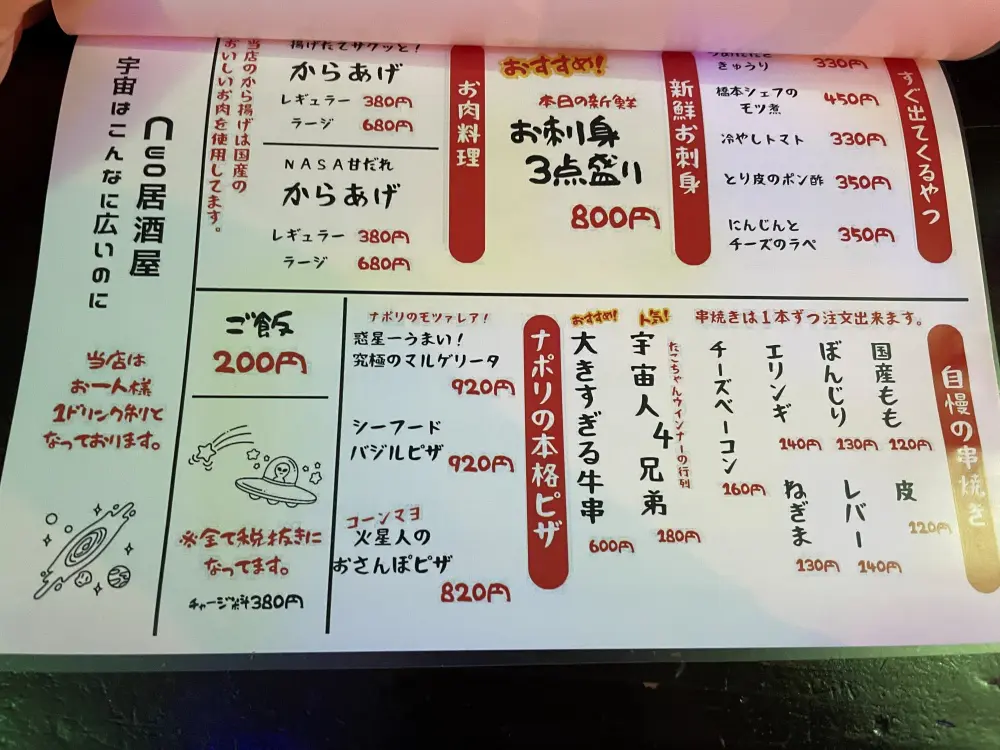 すぐ出てくるやつ
きゅうり 330円
橋本シェフの
モツ煮 450円
冷やしトマト 330円
とり皮のポン酢 350円
にんじんと
チーズのラペ 350円
新鮮お刺身
おすすめ!
本日の新鮮
お刺身
3点盛り
800円
お肉料理
揚げたてサクッと!
からあげ
レギュラー 380円
ラージ 680円
NASA甘だれ
からあげ
レギュラー 380円
ラージ 680円
当店のから揚げは国産の
おいしいお肉を使用してます。
自慢の串焼き
串焼きは1本ずつ注文出来ます。
国産もも 120円
ぼんじり 130円
エリンギ 140円
チーズベーコン 160円
皮 120円
レバー 140円
ねぎま 130円
人気!
たこちゃんウインナーの行列
宇宙人4兄弟
180円
おすすめ!
大きすぎる牛串
600円
ナポリの本格ピザ
ナポリのモツァレア!
惑星一うまい!
究極のマルゲリータ
920円
シーフード
バジルピザ 920円
コーンマヨ
火星人の
おさんぽピザ
820円
ご飯
200円
※全て税抜きに
なってます。
チャージ料380円
neo居酒屋
宇宙はこんなに広いのに
当店は
お一人様
1ドリンク制と
なっております。